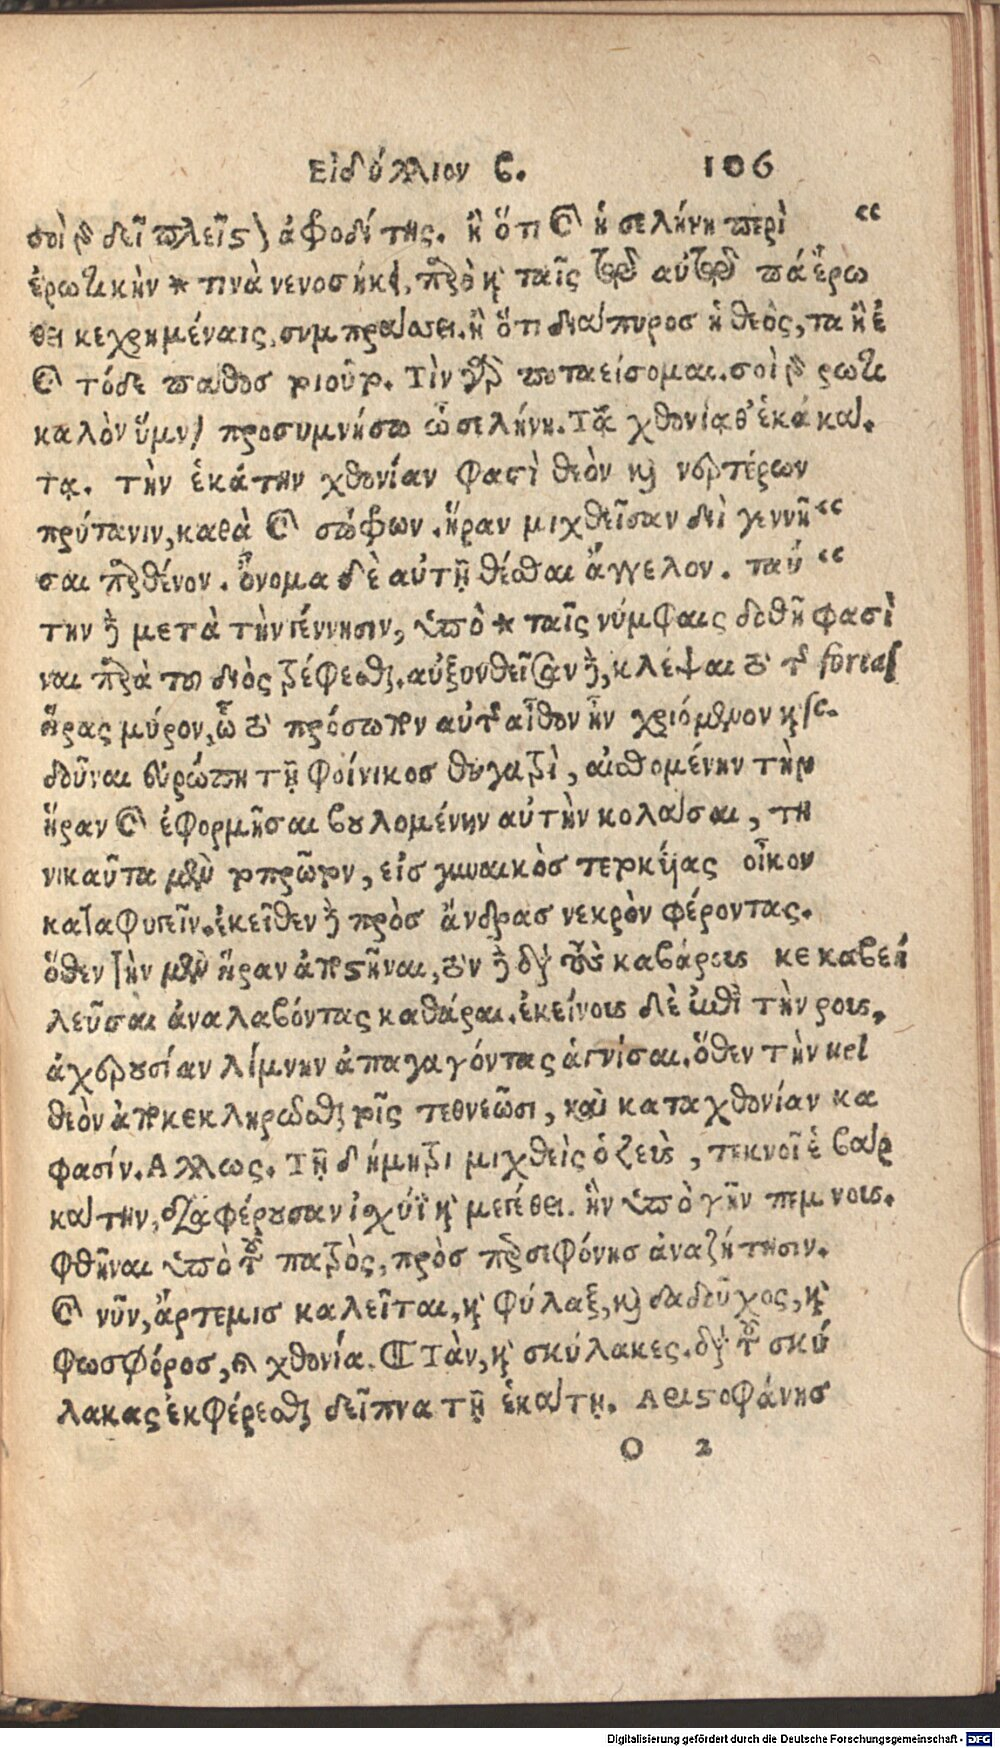 Εἰδύλλιον β. 106
σοὶ γὰρ δεῖ πλεῖστον ἀφροδίτης. ἢ ὅτι καὶ ἡ σελήνη περὶ “
ἐρωτικὴν * τινὰ νενοσήκει, παρὸ καὶ ταῖς τῶν αὐτῶν πάθεσι
κεχρημέναις, συμπράσσει. ἢ ὅτι διάπυρος ἡ θεὸς, τα ἢ ἐ
καὶ τόδε παθος Τὶν γὰρ ποταείσομαι. σοὶ γὰρ ρωτι
καλὸν ὕμνον προσυμνήσω ὦ σελήνη. Τᾷ χθονίᾳ θ’ ἑκά και.
τᾳ. τὴν ἑκάτην χθονίαν φασὶ θεὸν καὶ νερτέρων
πρύτανιν, καθὰ καὶ σώφρων. ἥραν μιχθεῖσαν διὶ γεννῆ “
σαι παρθένον. ὄνομα δὲ αὐτῇ θέσθαι ἄγγελον. ταύ “
την δὲ μετὰ τὴν γέννησιν, ὑπὸ * ταῖς νύμφαις δοθῆ φασὶ
ναι παρὰ τοῦ διὸς τρέφεσθαι. αὐξυνθεῖσαν δὲ, κλέψαι τὸ τῆς fortas
ἥρας μύρον, ᾧ τὸ πρόσωπον αὐτῆς αἶθον ἦν χριόμενον καὶ sc.
δοῦναι εὐρώπῃ τῇ φοίνικος θυγατρὶ, αἰσθομένην τὴν
ἥραν καὶ ἐφορμῆσαι βουλομένην αὐτὴν κολάσαι, τη
νικαῦτα μὲν πρῶτον, εἰς γυναικὸς τετοκυίας οἶκον
καταφυγεῖν. ἐκεῖθεν δὲ πρὸς ἄνδρας νεκρὸν φέροντας.
ὅθεν τὴν μὲν ἥραν ἀποστῆναι, τὸν δὲ δία τοὺς καβάρους κε καβεί
λεῦσαι ἀναλαβόντας καθάραι. ἐκείνους δὲ ἐπὶ τὴν ρους,
ἀχερουσίαν λίμνην ἀπαγαγόντας ἁγνίσαι. ὅθεν τὴν uel
θεὸν ἀποκεκληρῶσθαι τοῖς τεθνεῶσι, καὶ καταχθονίαν κα
φασίν. Ἄλλως. Τῇ δήμητρι μιχθεὶς ὁ ζεὺς, τεκνοῖ ἑ βαίρ
κάτην, διαφέρουσαν ἰσχύϊ καὶ μεγέθει. ἣν ὑπὸ γῆν πεμ νους.
φθῆναι ὑπὸ τοῦ πατρὸς, πρὸς περσεφόνης ἀναζήτησιν.
καὶ νῦν, ἄρτεμις καλεῖται, καὶ φύλαξ, καὶ δαδοῦχος, καὶ
φωσφόρος, καὶ χθονία. ¶ Τὰν, καὶ σκύλακες. διὰ τοῦ σκύ
λακας ἐκφέρεσθαι δεῖπνα τῇ ἑκάτῃ. Ἀριστοφάνης
O 2
Digitalisierung gefördert durch die Deutsche Forschungsgemeinschaft - DFG